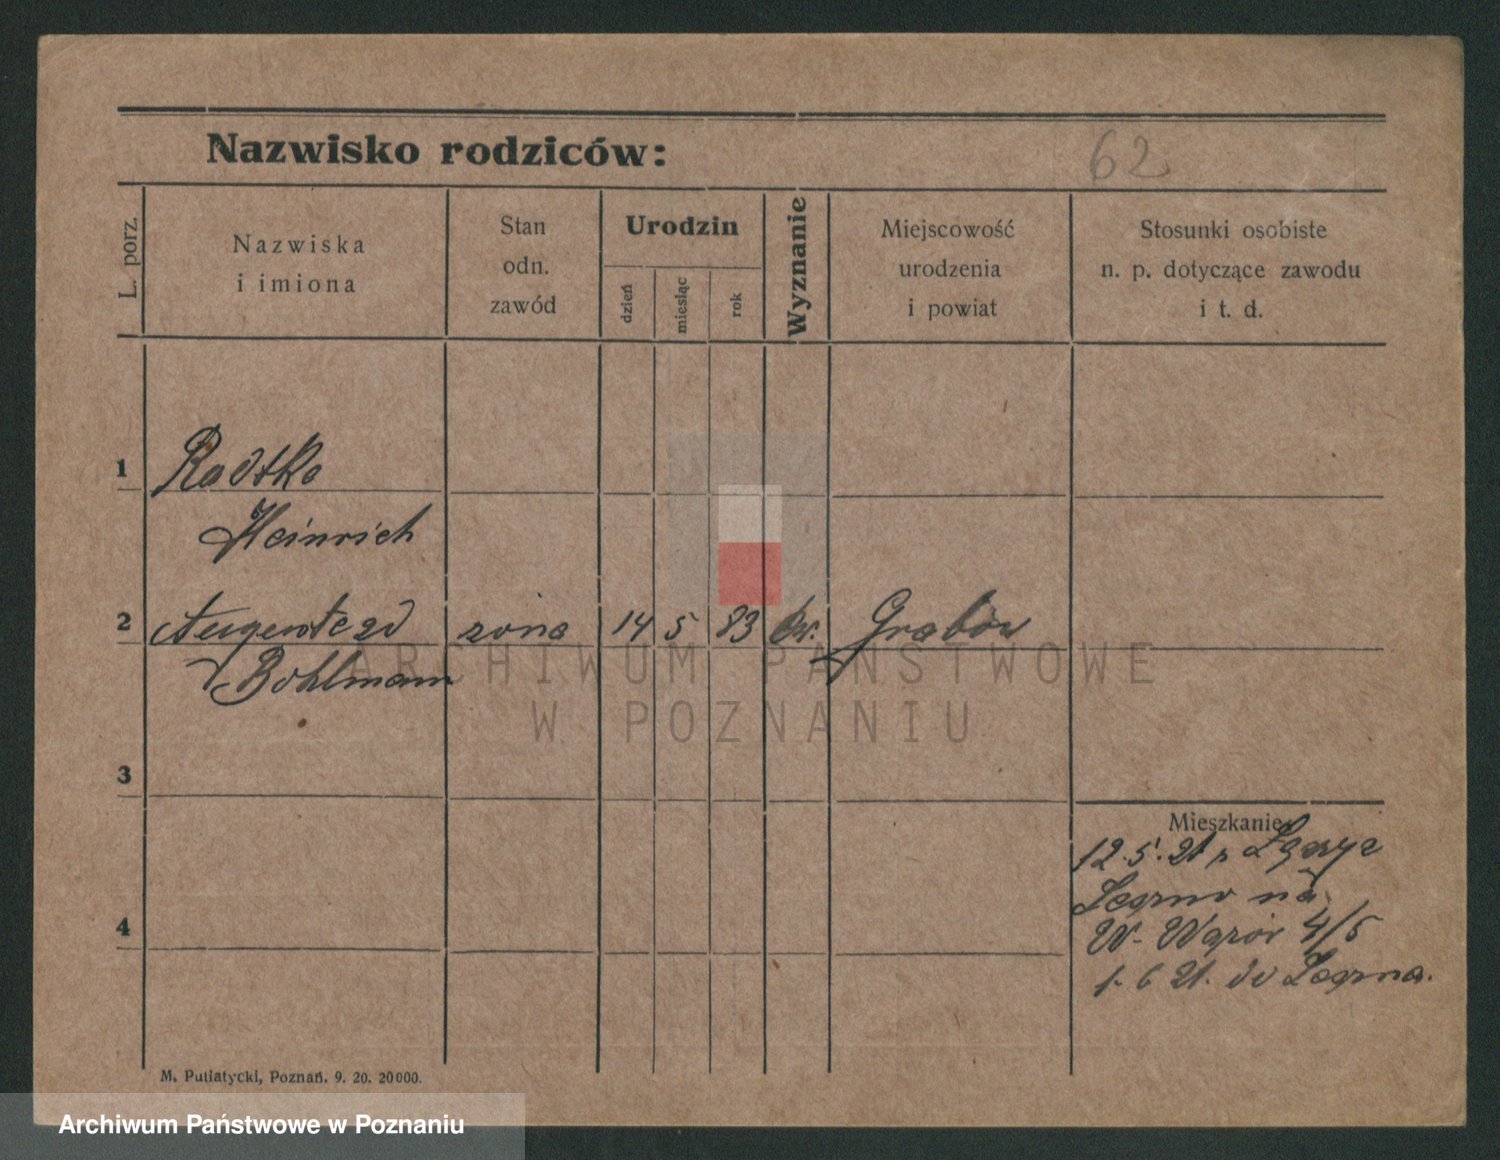 Nazwisko rodziców:
62
L. porz.
Nazwiska
i imiona
Stan
odn.
zawód
Urodzin
dzień
miesiąc
rok
Wyznanie
Miejscowość
urodzenia
i powiat
Stosunki osobiste
n. p. dotyczące zawodu
i t. d.
1
Radtke
Heinrich
2
żona
14
5
83
Grabów
Bohlmann
ARCHIWUM PAŃSTWOWE
W POZNANIU
3
Mieszkanie
12.5.21 z
na
W. 4/5
1.6 21. do
4
M. Putiatycki, Poznań. 9. 20. 20000.
Archiwum Państwowe w Poznaniu